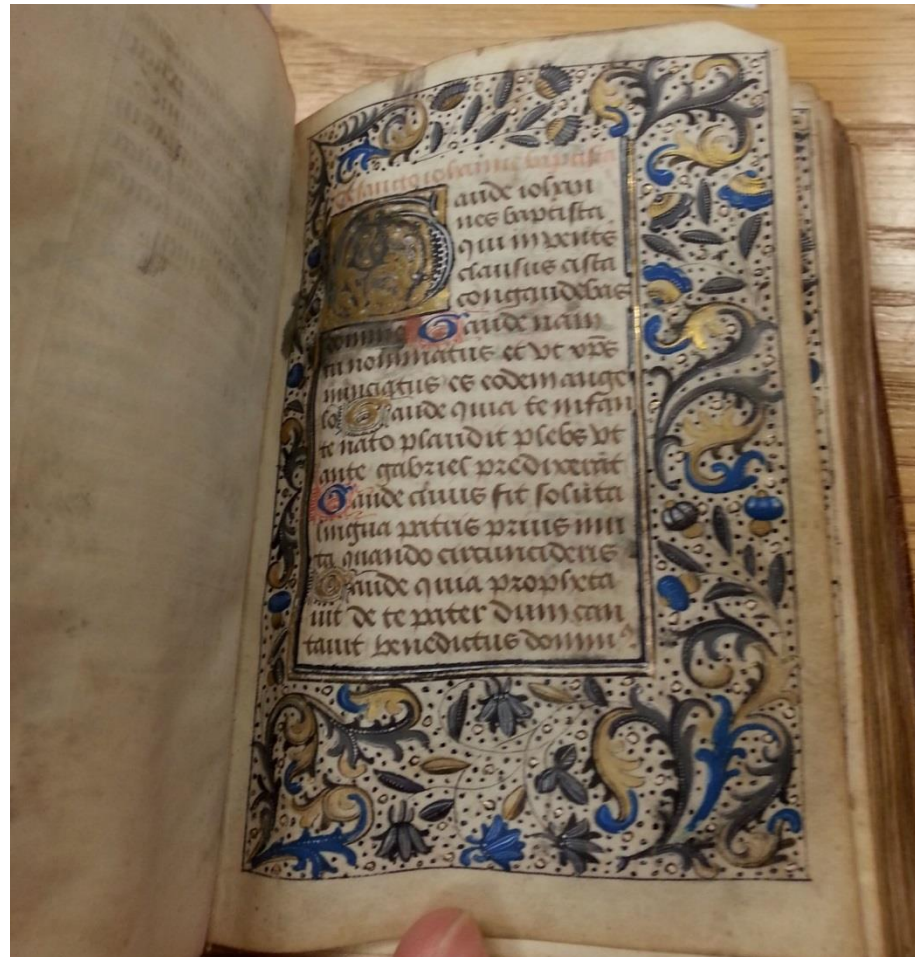 De sancto iohanne baptista
Gaude iohan
nes baptista
qui in ventre
clausus cista
congaudebas
domino Gaude nam
ta nominatus et vt vps
nunciatus es eodem ange
lo Gaude quia te infan
te nato plaudit plebs vt
ante gabriel predixerat
Gaude cuius fit soluta
lingua patris prius mu
ta quando circuncideris
Gaude quia propheta
uit de te pater dum can
tauit benedictus domin